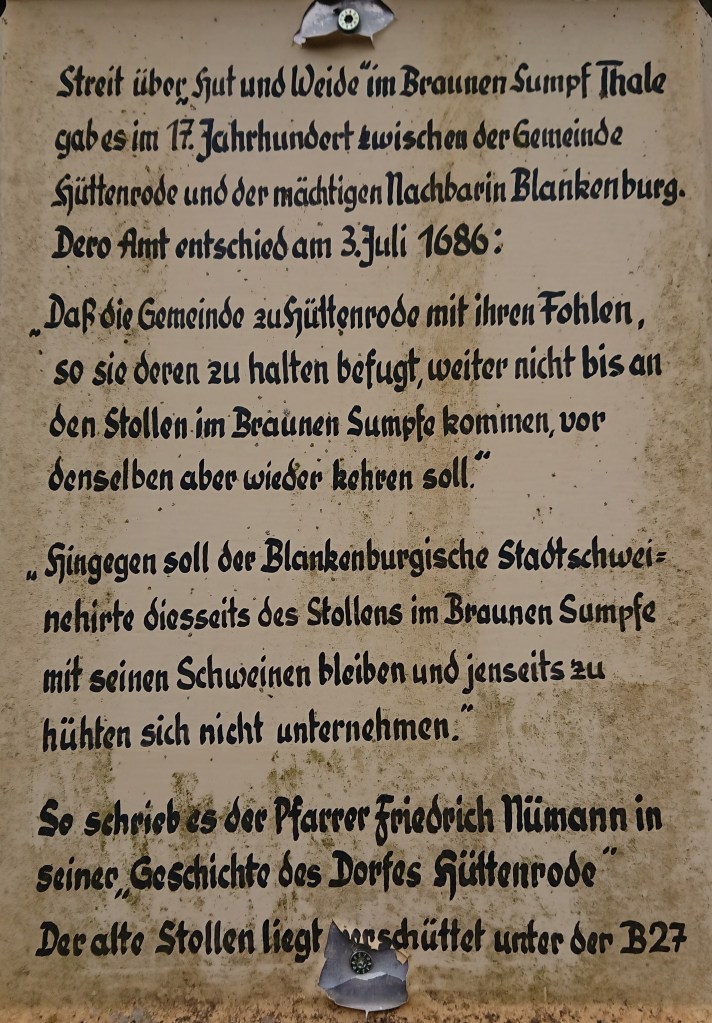 Streit über „Hut und Weide“ im Braunen Sumpf Thale
gab es im 17. Jahrhundert zwischen der Gemeinde
Hüttenrode und der mächtigen Nachbarin Blankenburg.
Dero Amt entschied am 3. Juli 1686:
„Daß die Gemeinde zu Hüttenrode mit ihren Fohlen,
so sie deren zu halten befugt, weiter nicht bis an
den Stollen im Braunen Sumpfe kommen, vor
denselben aber wieder kehren soll.“
„Hingegen soll der Blankenburgische Stadtschwei=
nehirte diesseits des Stollens im Braunen Sumpfe
mit seinen Schweinen bleiben und jenseits zu
hühten sich nicht unternehmen.“
So schrieb es der Pfarrer Friedrich Nümann in
seiner „Geschichte des Dorfes Hüttenrode“
Der alte Stollen liegt verschüttet unter der B27